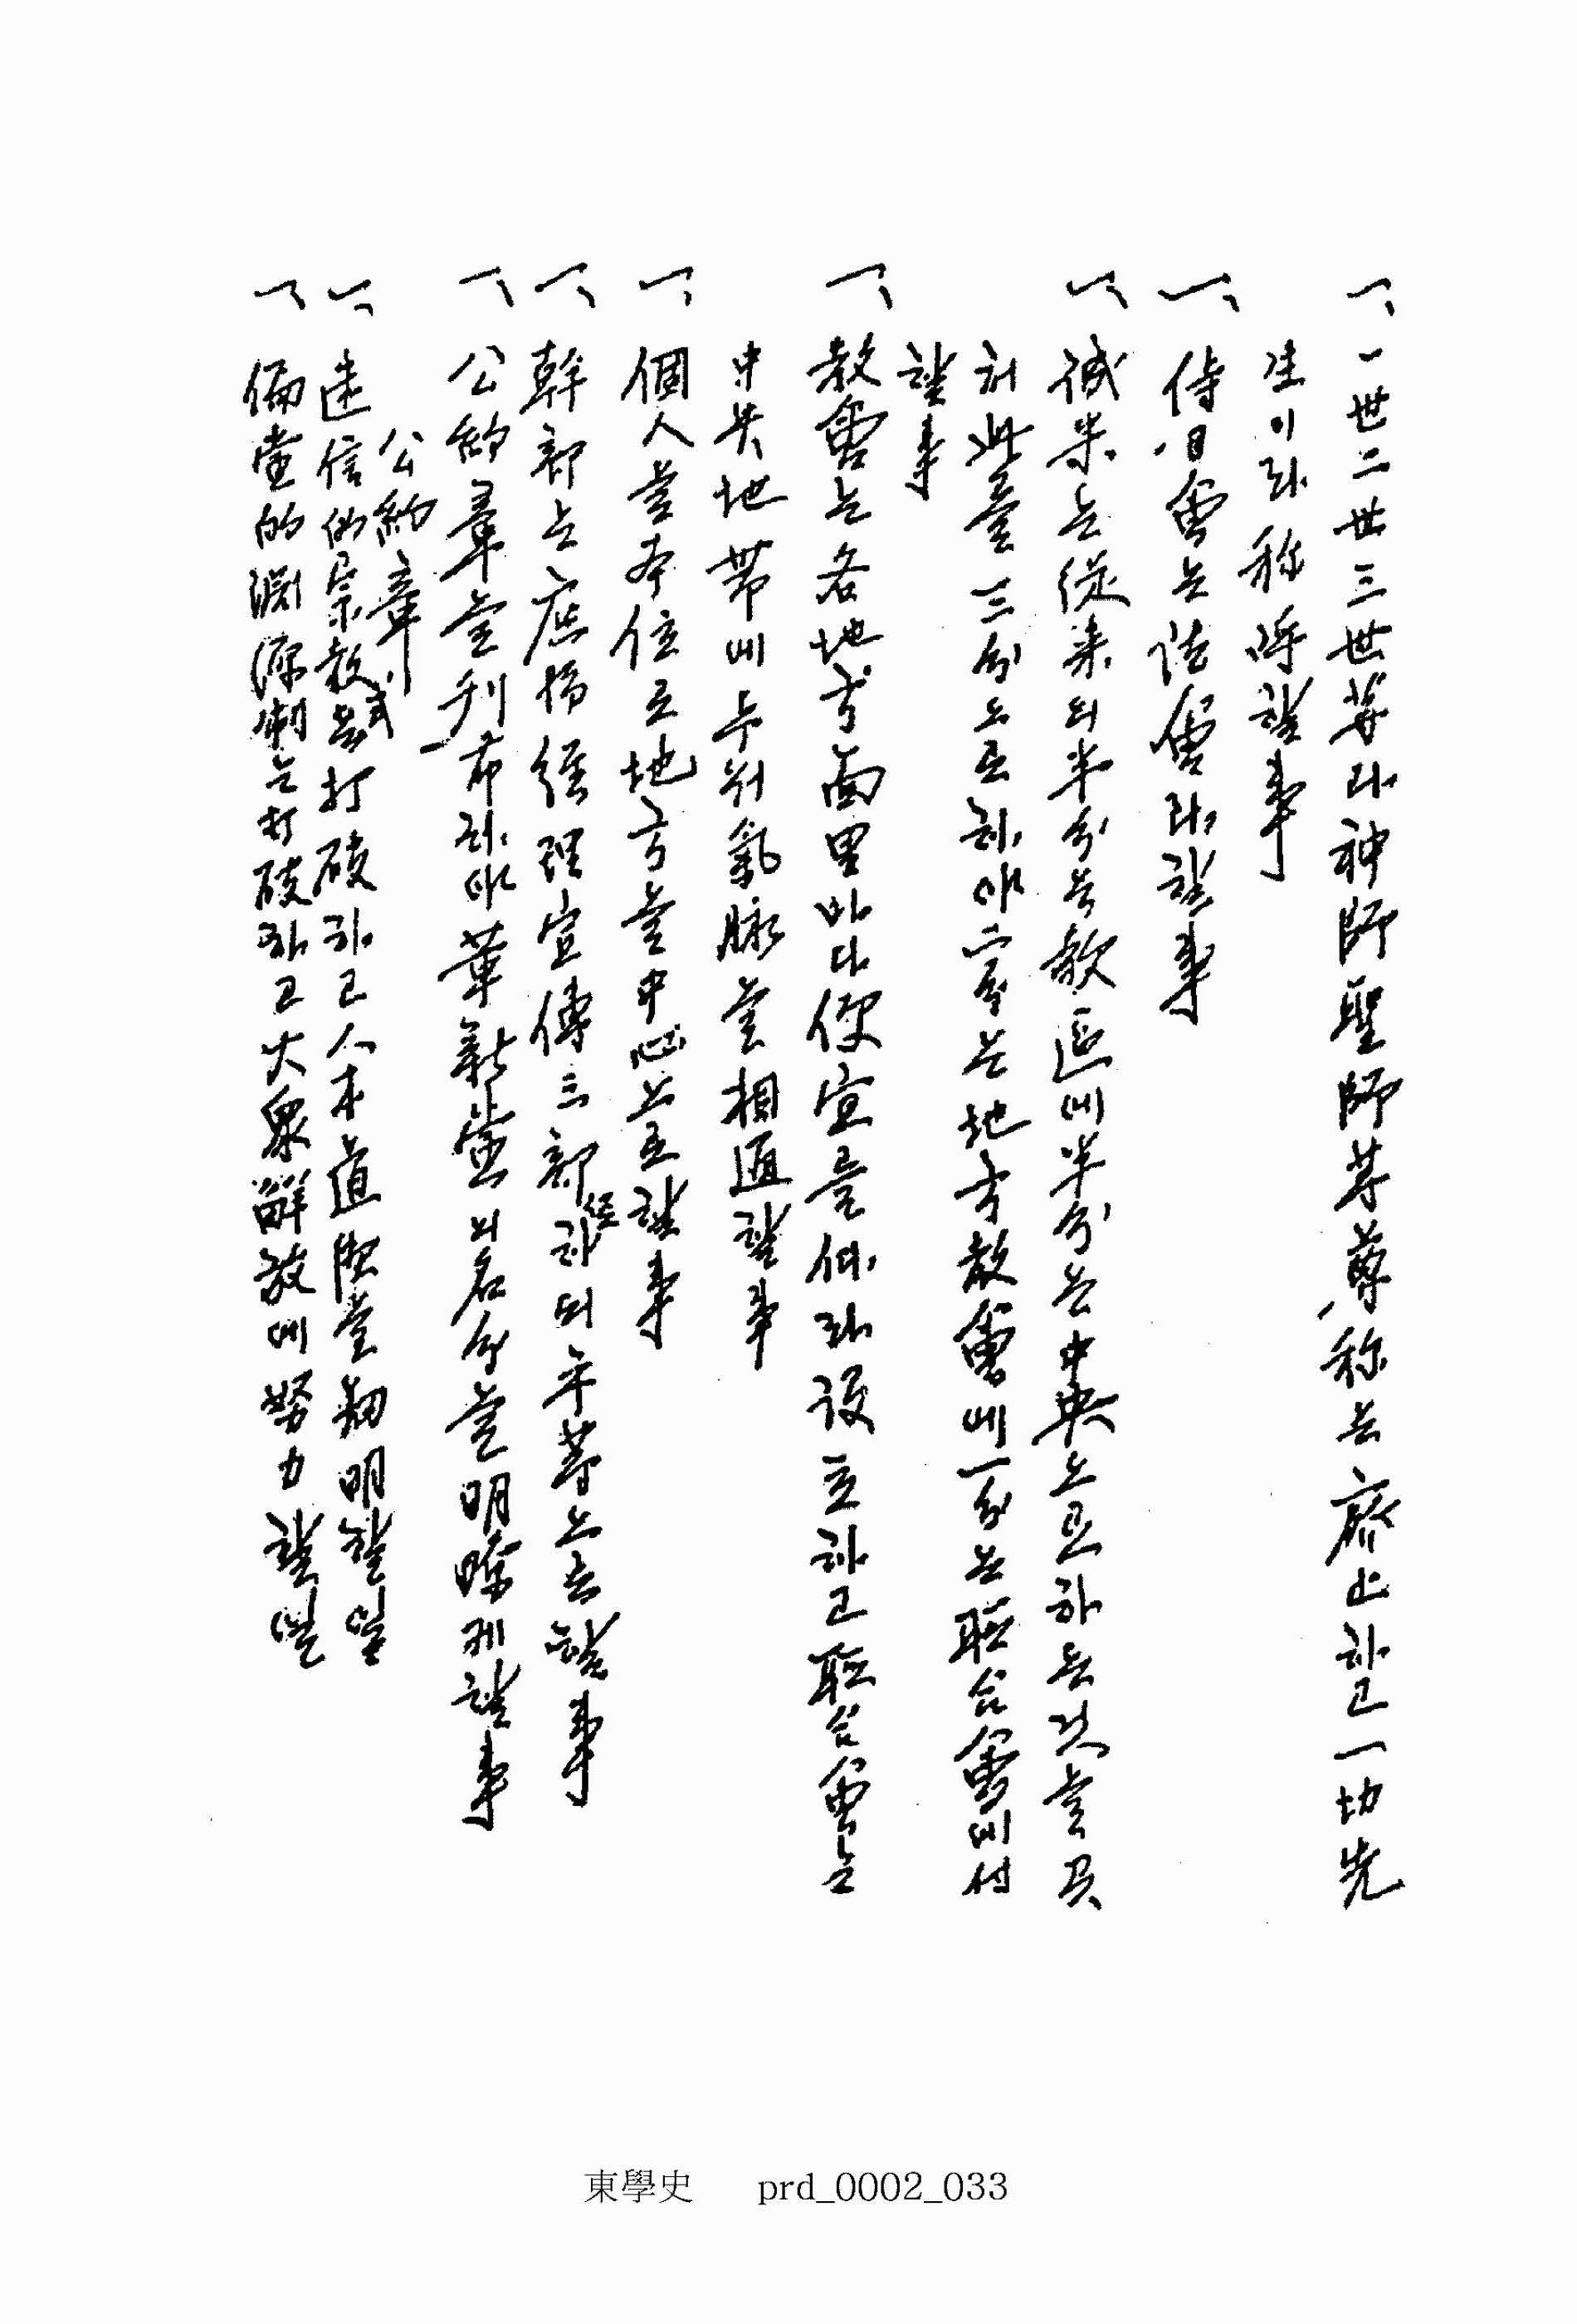 一、一世二世三世等라神師聖師等尊称은廃止하고一切先
生이라称呼할事
一、侍日會는法會라할事
一、誠米는從来의半分은教區에半分은中央으로하는것을
此를三分으로하야二分은地方教會에一分은聯合會에付
할事
一、教會는各地方面里마다便宜를 設立하고聯合會는
中央地帯에두워氣脉을相通할事
一、個人을本位로地方을中心으로할事
一、幹部는庶務經理宣傳三部 하되平等으로할事
一、公約章을刊布하야革新黨의名分을明瞭케할事
公約章
一、迷信的宗教式을打破하고人本道 을 明할일
一、偏黨的淵源制는打破하고大衆解放에努力할일
東學史 prd_0002_033